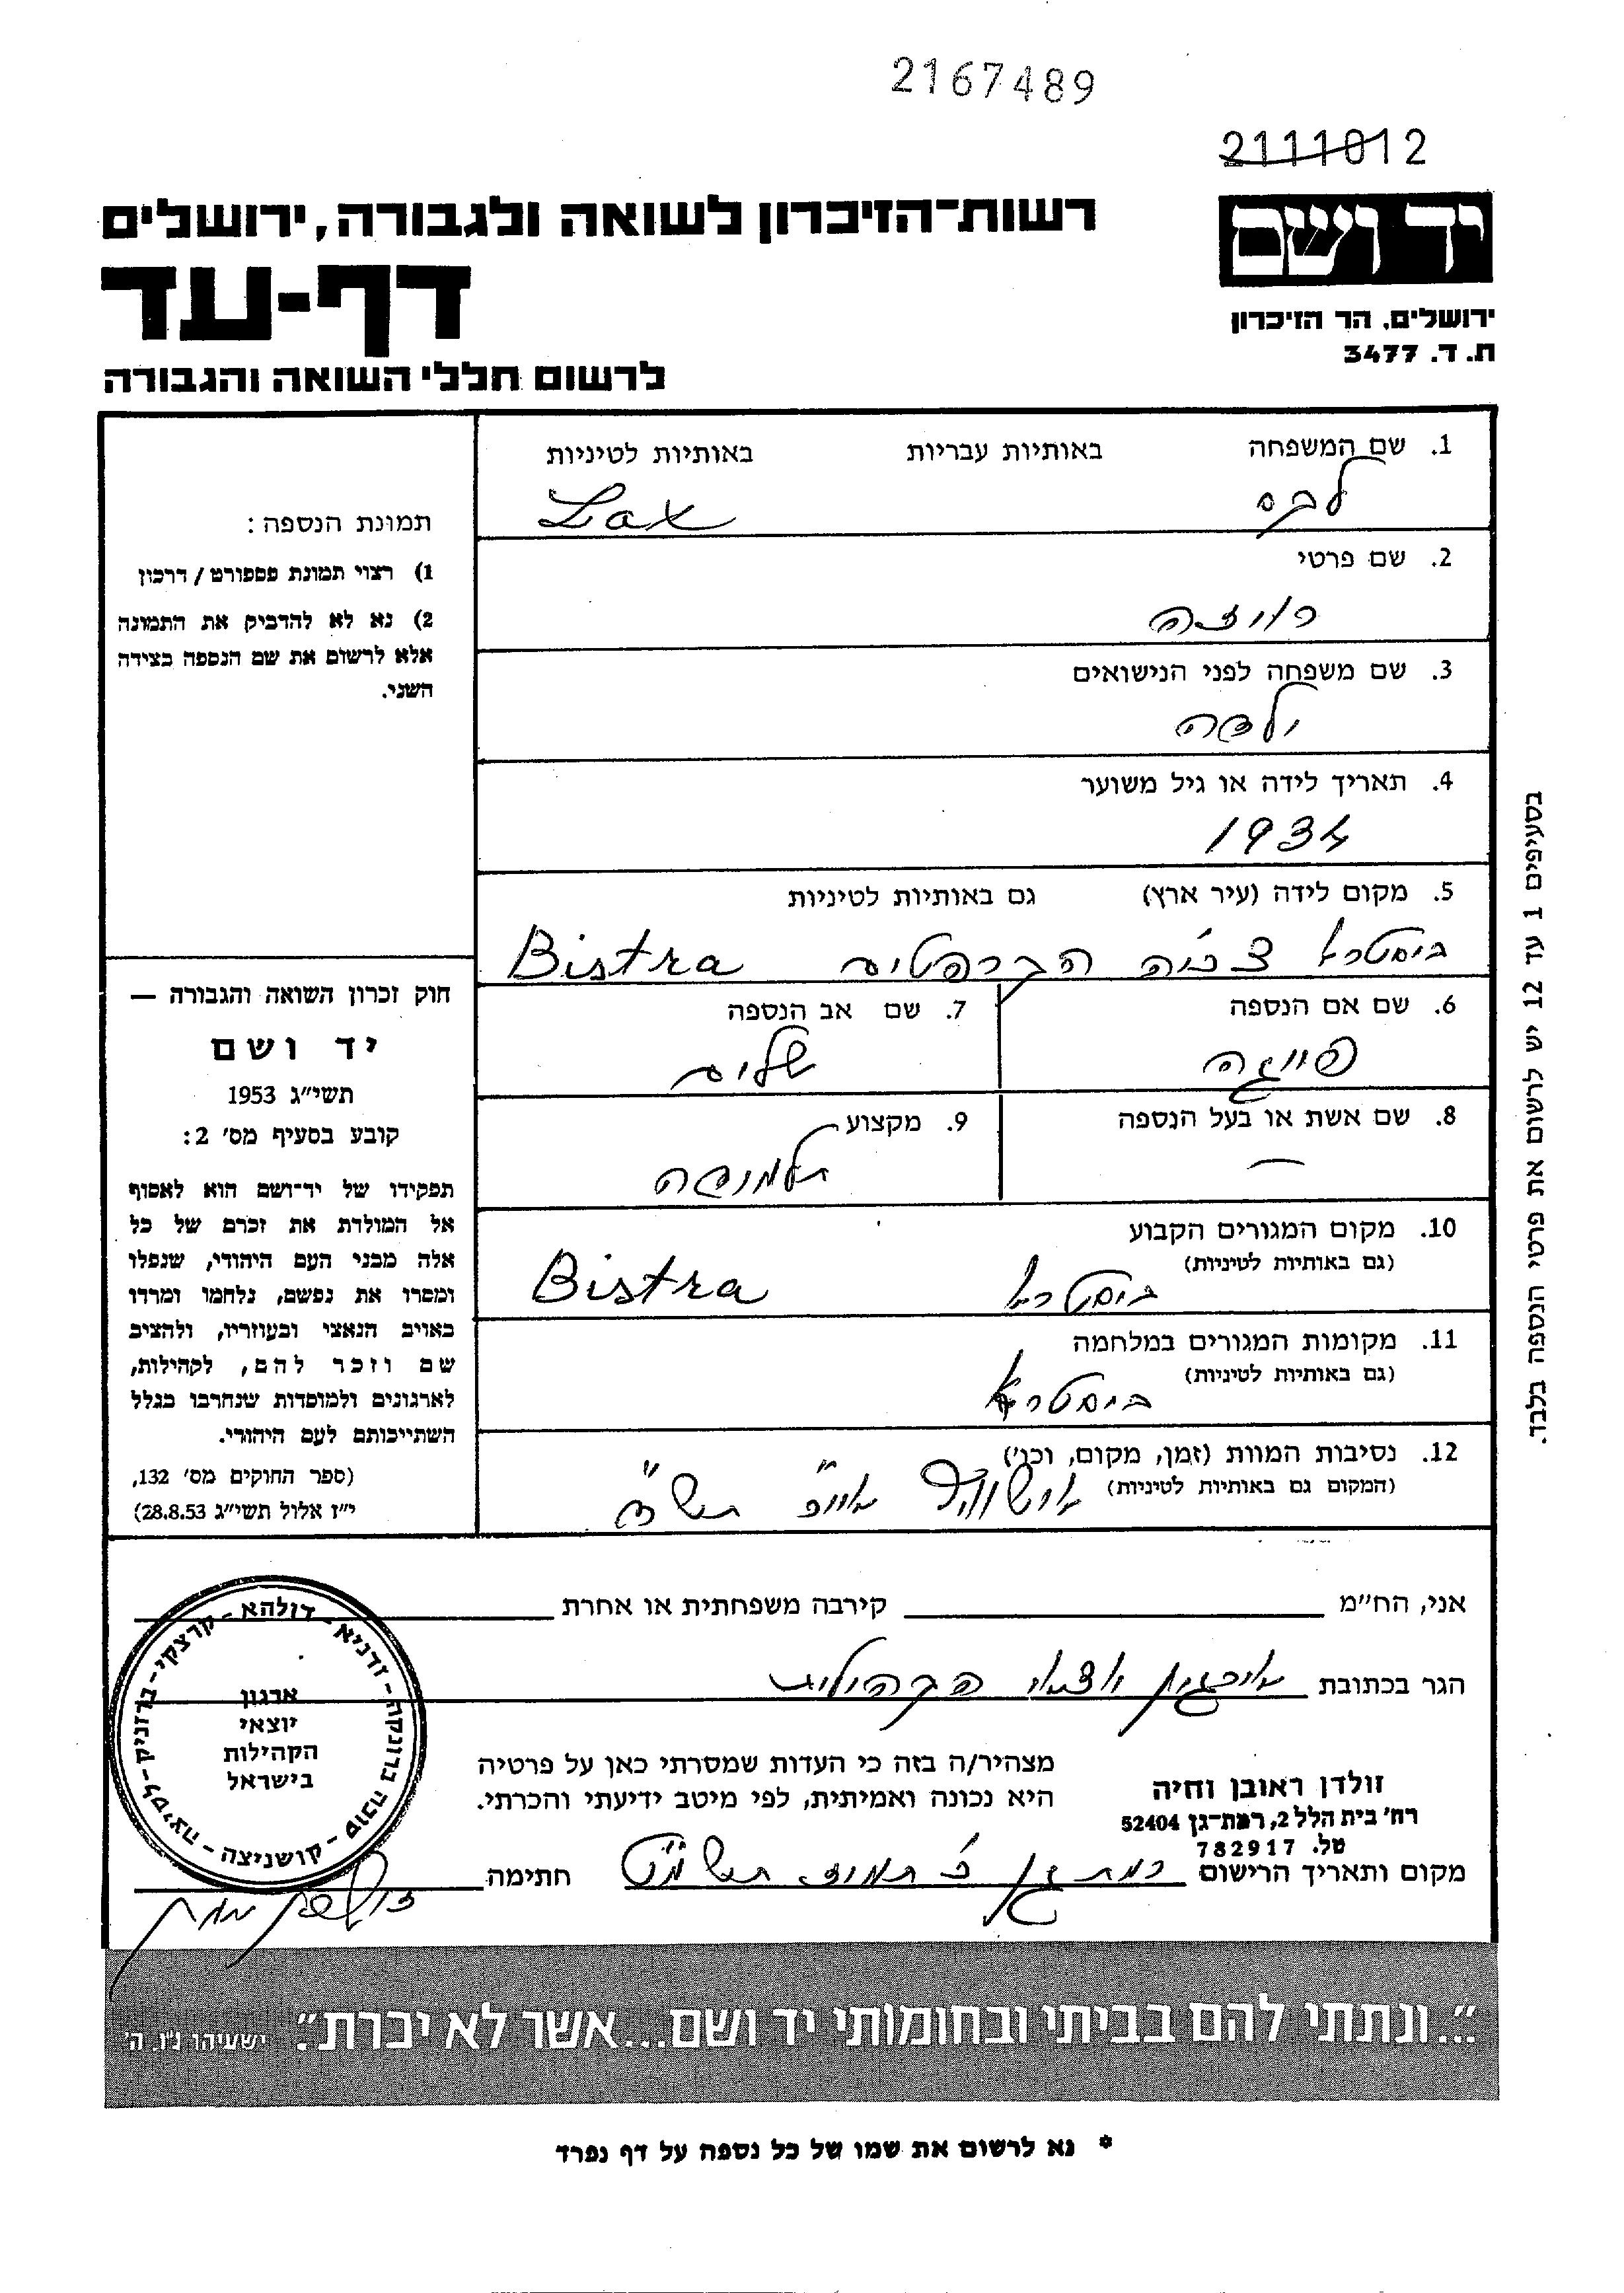 2167489
2111012
יד ושם
ירושלים, הר הזיכרון
ת. ד. 3477
רשות-הזיכרון לשואה ולגבורה, ירושלים
דף-עד
לרשום חללי השואה והגבורה
1. שם המשפחה באותיות עבריות באותיות לטיניות
לקס Lax
2. שם פרטי
רוזה
3. שם משפחה לפני הנישואים
ילדה
4. תאריך לידה או גיל משוער
1934
5. מקום לידה (עיר ארץ) גם באותיות לטיניות
ביסטרא צ'כיה הקרפטים Bistra
6. שם אם הנספה
פייגה
7. שם אב הנספה
שלום
8. שם אשת או בעל הנספה
—
9. מקצוע
תלמידה
10. מקום המגורים הקבוע
(גם באותיות לטיניות)
ביסטרא Bistra
11. מקומות המגורים במלחמה
(גם באותיות לטיניות)
ביסטרא
12. נסיבות המוות (זמן, מקום, וכו')
(המקום גם באותיות לטיניות)
אושוויץ אייר תש"ד
תמונת הנספה:
1) רצוי תמונת פספורט / דרכון
2) נא לא להדביק את התמונה
אלא לרשום את שם הנספה בצידה
השני.
חוק זכרון השואה והגבורה —
יד ושם
תשי"ג 1953
קובע בסעיף מס' 2:
תפקידו של יד-ושם הוא לאסוף
אל המולדת את זכרם של כל
אלה מבני העם היהודי, שנפלו
ומסרו את נפשם, נלחמו ומרדו
באויב הנאצי ובעוזריו, ולהציב
שם וזכר להם, לקהילות,
לארגונים ולמוסדות שנחרבו בגלל
השתייכותם לעם היהודי.
(ספר החוקים מס' 132,
י"ז אלול תשי"ג 28.8.53)
בסעיפים 1 עד 12 יש לרשום את פרטי הנספה בלבד.
אני, הח"מ קירבה משפחתית או אחרת
הגר בכתובת ארגון יוצאי הקהילות
מצהיר/ה בזה כי העדות שמסרתי כאן על פרטיה
היא נכונה ואמיתית, לפי מיטב ידיעתי והכרתי.
זולדן ראובן וחיה
רח' בית הלל 2, רמת-גן 52404
טל. 782917
מקום ותאריך הרישום רמת גן כ' תמוז תשמ"ט חתימה
דולהא - זדניא - ברונקה - סוכה - קושניצה - לסיצה - ברזניק - קרצקי
ארגון
יוצאי
הקהילות
בישראל
"...ונתתי להם בביתי ובחומותי יד ושם...אשר לא יכרת". ישעיהו נ"ו, ה'
* נא לרשום את שמו של כל נספה על דף נפרד